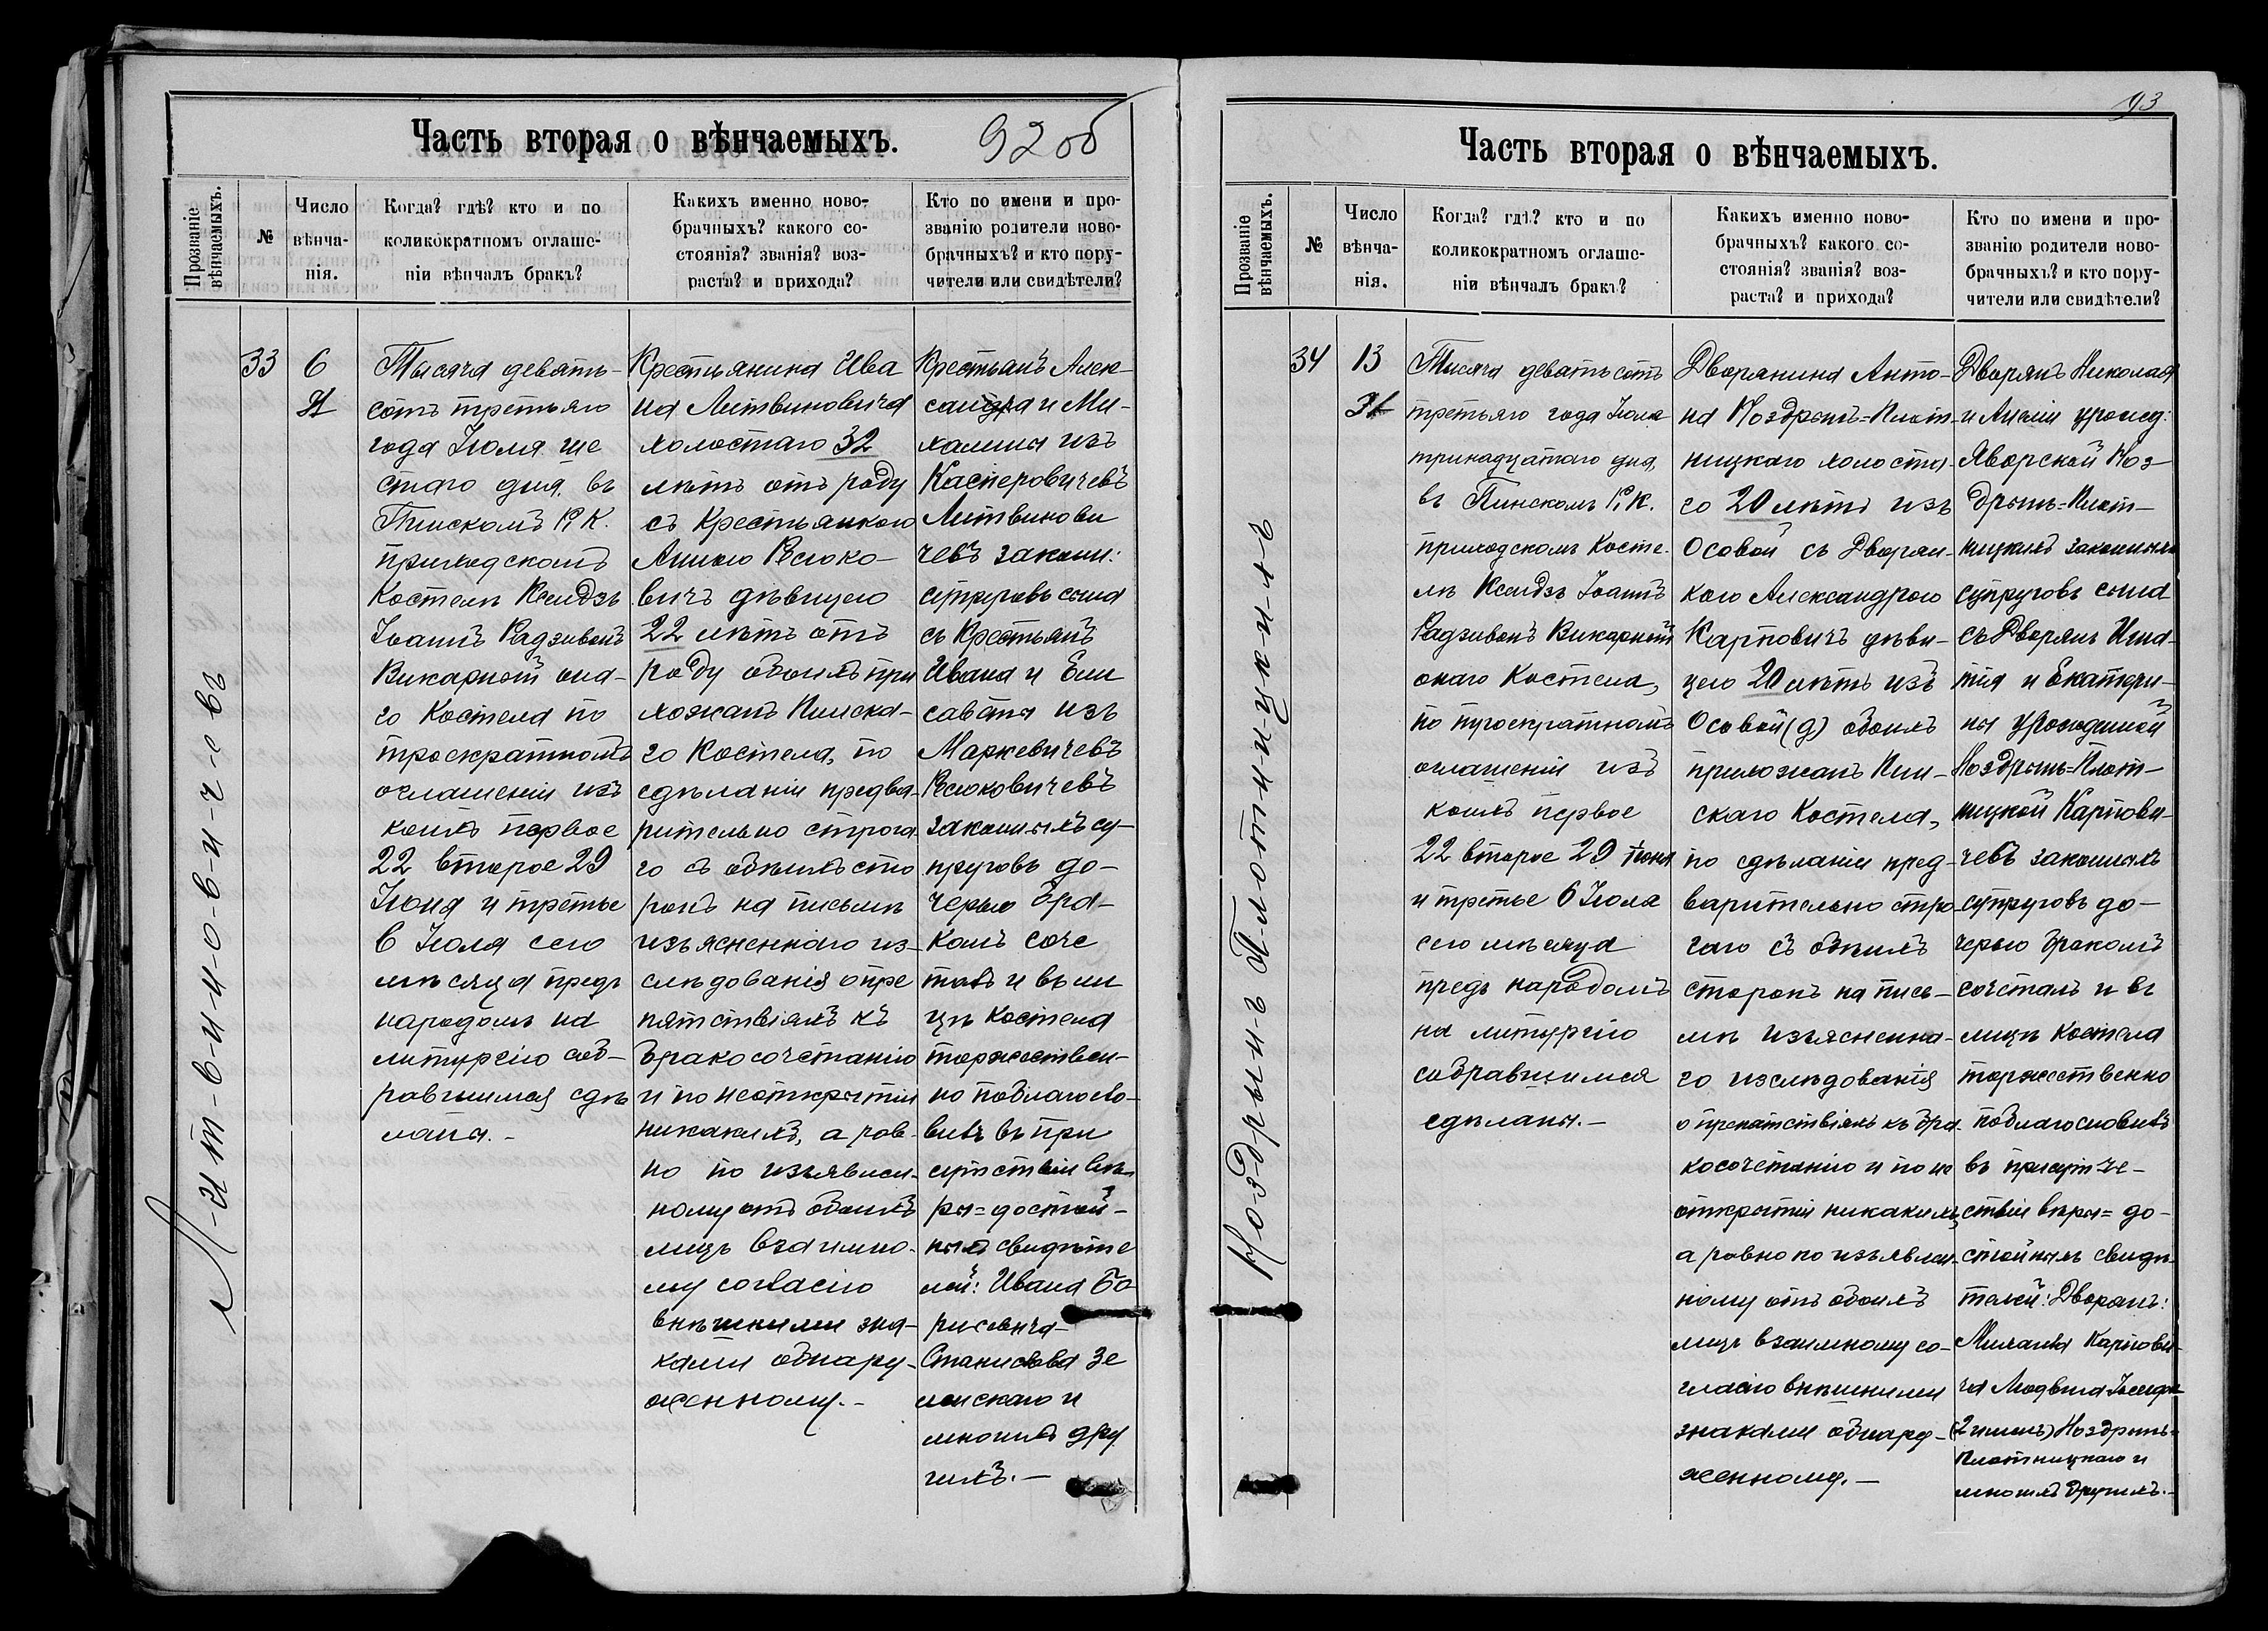 Часть вторая о вѣнчаемыхъ.
92 об
Прозваніе
вѣнчаемыхъ.
№
Число
вѣнча-
нія.
Когда? гдѣ? кто и по
коликократномъ оглаше-
ніи вѣнчалъ бракъ?
Какихъ именно ново-
брачныхъ? какого со-
стоянія? званія? воз-
раста? и прихода?
Кто по имени и про-
званію родители ново-
брачныхъ? и кто пору-
чители или свидѣтели?
Л-и-т-в-и-н-о-в-и-ч-е-въ
33
6
Тысяча девять-
сотъ третьяго
года Іюля ше
стаго дня въ
Пинскомъ Р. К.
приходскомъ
Костелѣ Ксендзъ
Іоаннъ Радзивонъ
Викарный она-
го Костела по
троекратномъ
оглашеніи изъ
коихъ первое
22 второе 29
Іюня и третье
6 Іюля сего
мѣсяца предъ
народомъ на
литургію соб-
равшимся сдѣ
лана.-
Крестьянина Ива
на Литвиновича
холостаго 32
лѣтъ отъ роду
съ Крестьянкою
Анною Веюко-
вичъ дѣвицею
22 лѣтъ отъ
роду обоихъ при
хожанъ Пинска-
го Костела, по
сдѣланіи предва-
рительно строга-
го съ обѣихъ сто
ронъ на письмѣ
изъясненнаго из-
слѣдованія о пре
пятствіяхъ къ
бракосочетанію
и по неоткрытіи
никакихъ, а рав-
но по изъявлен-
ному отъ обоихъ
лицъ взаимно-
му согласію
внѣшними зна-
ками обнару-
женному.-
Крестьянъ Алек-
сандра и Ми-
халины изъ
Касперовичевъ
Литвинови
чевъ законн:
супруговъ сына
съ Крестьянъ
Ивана и Ели
саветы изъ
Маркевичевъ
Веюковичевъ
законныхъ су-
пруговъ до-
черью бра-
комъ соче
талъ и въ ли
цѣ Костела
торжествен-
но поблагосло-
вилъ въ при
сутствіи вѣ-
ры=достой-
ныхъ свидѣте
лей: Ивана Бо
рисевича
Станислава Зе
линскаго и
многихъ дру
гихъ.-
93
Часть вторая о вѣнчаемыхъ.
Прозваніе
вѣнчаемыхъ.
№
Число
вѣнча-
нія.
Когда? гдѣ? кто и по
коликократномъ оглаше-
ніи вѣнчалъ бракъ?
Какихъ именно ново-
брачныхъ? какого со-
стоянія? званія? воз-
раста? и прихода?
Кто по имени и про-
званію родители ново-
брачныхъ? и кто пору-
чители или свидѣтели?
Н-о-з-д-р-ы-н-ъ П-л-о-т-н-и-ц-к-и-х-ъ
34
13
Тысяча девятьсотъ
третьяго года Іюля
тринадцатаго дня,
въ Пинскомъ Р. К.
приходскомъ Косте-
лѣ Ксендзъ Іоаннъ
Радзивонъ Викарный
онаго Костела,
по троекратномъ
оглашеніи изъ
коихъ первое
22 второе 29 Іюня
и третье 6 Іюля
сего мѣсяца
предъ народомъ
на литургію
собравшимся
сдѣланы.-
Дворянина Анто-
на Ноздрынъ=Плот-
ницкаго холоста-
го 20 лѣтъ изъ
Осовой съ Дворян-
кою Александрою
Карповичъ дѣви-
цею 20 лѣтъ изъ
Осовой (д) обоихъ
прихожанъ Пин-
скаго Костела,
по сдѣланіи пред-
варительно стро-
гаго съ обѣихъ
сторонъ на пись-
мѣ изъясненна-
го изслѣдованія
о препятствіяхъ къ бра-
косочетанію и по не
открытіи никакихъ,
а равно по изъявлен-
ному отъ обоихъ
лицъ взаимному со-
гласію внѣшними
знаками обнару-
женному.-
Дворянъ Николая
и Анели урожд:
Яворской Ноз-
дрынъ=Плот-
ницкихъ законныхъ
супруговъ сына
съ Дворянъ Игна-
тія и Екатери-
ны урожденной
Ноздрынъ=Плот-
ницкой Карпови-
чевъ законныхъ
супруговъ до-
черью бракомъ
сочеталъ и въ
лицѣ Костела
торжественно
поблагословилъ
въ присут-
ствіи вѣры=до-
стойныхъ свидѣ-
телей: Дворянъ:
Михаила Карпови-
ча Людвига
(2 именъ) Ноздрынъ=
Плотницкаго и
многихъ другихъ.-